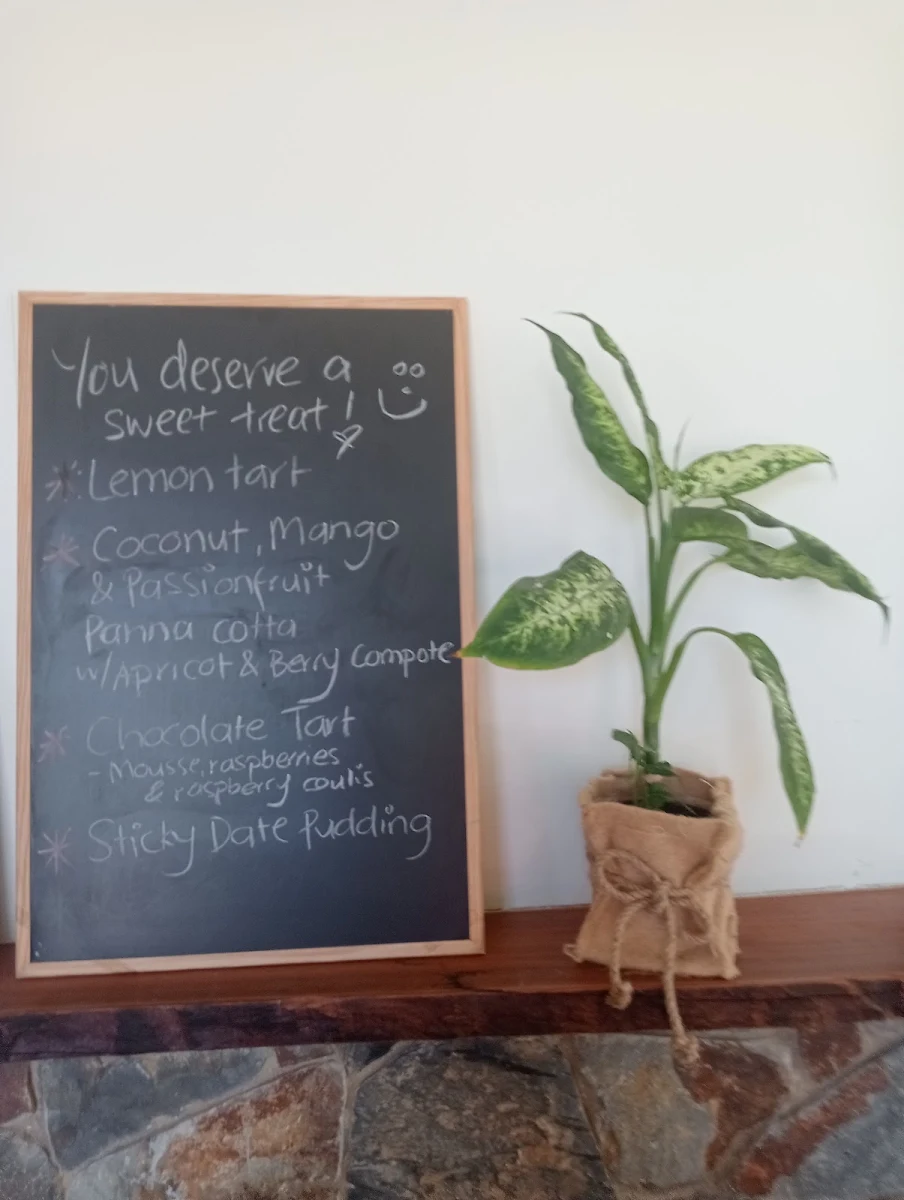 You deserve a
sweet treat!
Lemon tart
Coconut, Mango
& Passionfruit
Panna cotta
w/Apricot & Berry Compote
Chocolate Tart
- Mousse, raspberries
& raspberry coulis
Sticky Date Pudding